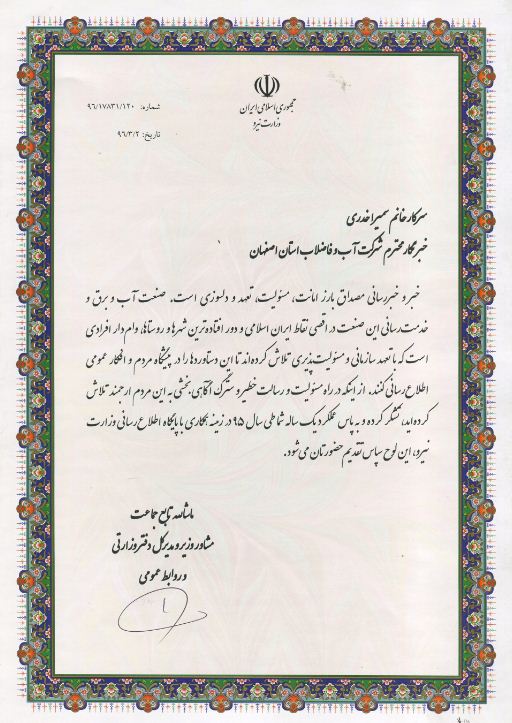 جمهوری اسلامی ایران
وزارت نیرو
شماره: ۹۶/۱۷۸۳۱/۱۲۰
تاریخ: ۹۶/۳/۲
سرکار خانم سمیرا خدری
خبرنگار محترم شرکت آب و فاضلاب استان اصفهان
خبر و خبررسانی مصداق بارز امانت، مسئولیت، تعهد و دلسوزی است. صنعت آب و برق و
خدمت‌رسانی این صنعت در اقصی نقاط ایران اسلامی و دور افتاده‌ترین شهرها و روستاها، وام‌دار افرادی
است که با تعهد سازمانی و مسئولیت‌پذیری تلاش کرده‌اند تا این دستاوردها را در پیشگاه مردم و افکار عمومی
اطلاع‌رسانی کنند. از اینکه در راه مسئولیت و رسالت خطیر و سترگ آگاهی‌بخشی به این مردم ارجمند تلاش
کرده‌اید، تشکر کرده و به پاس عملکرد یک ساله شما طی سال ۹۵ در زمینه همکاری با پایگاه اطلاع‌رسانی وزارت
نیرو، این لوح سپاس تقدیم حضورتان می‌شود.
ماشاالله تابع جماعت
مشاور وزیر و مدیرکل دفتر وزارتی
و روابط عمومی